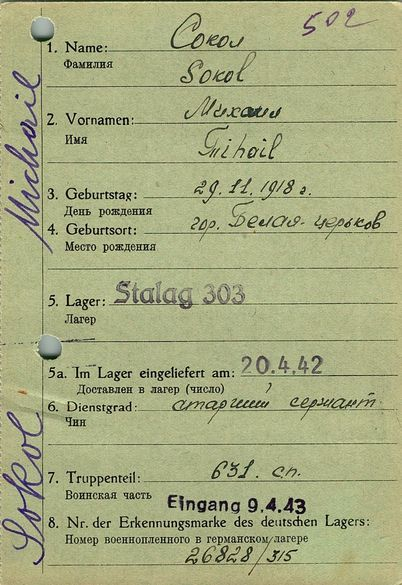 502
1. Name: Сокол
Фамилия
Sokol
2. Vornamen: Михаил
Имя
Mihail
3. Geburtstag: 29.11.1918 г.
День рождения
4. Geburtsort: гор. Белая-церьков
Место рождения
5. Lager: Stalag 303
Лагер
5a. Im Lager eingeliefert am: 20.4.42
Доставлен в лагер (число)
6. Dienstgrad: старший сержант
Чин
7. Truppenteil: 631. сп.
Воинская часть
Eingang 9.4.43
8. Nr. der Erkennungsmarke des deutschen Lagers:
Номер военнопленного в германском лагере
26828/315
Michail
Sokol